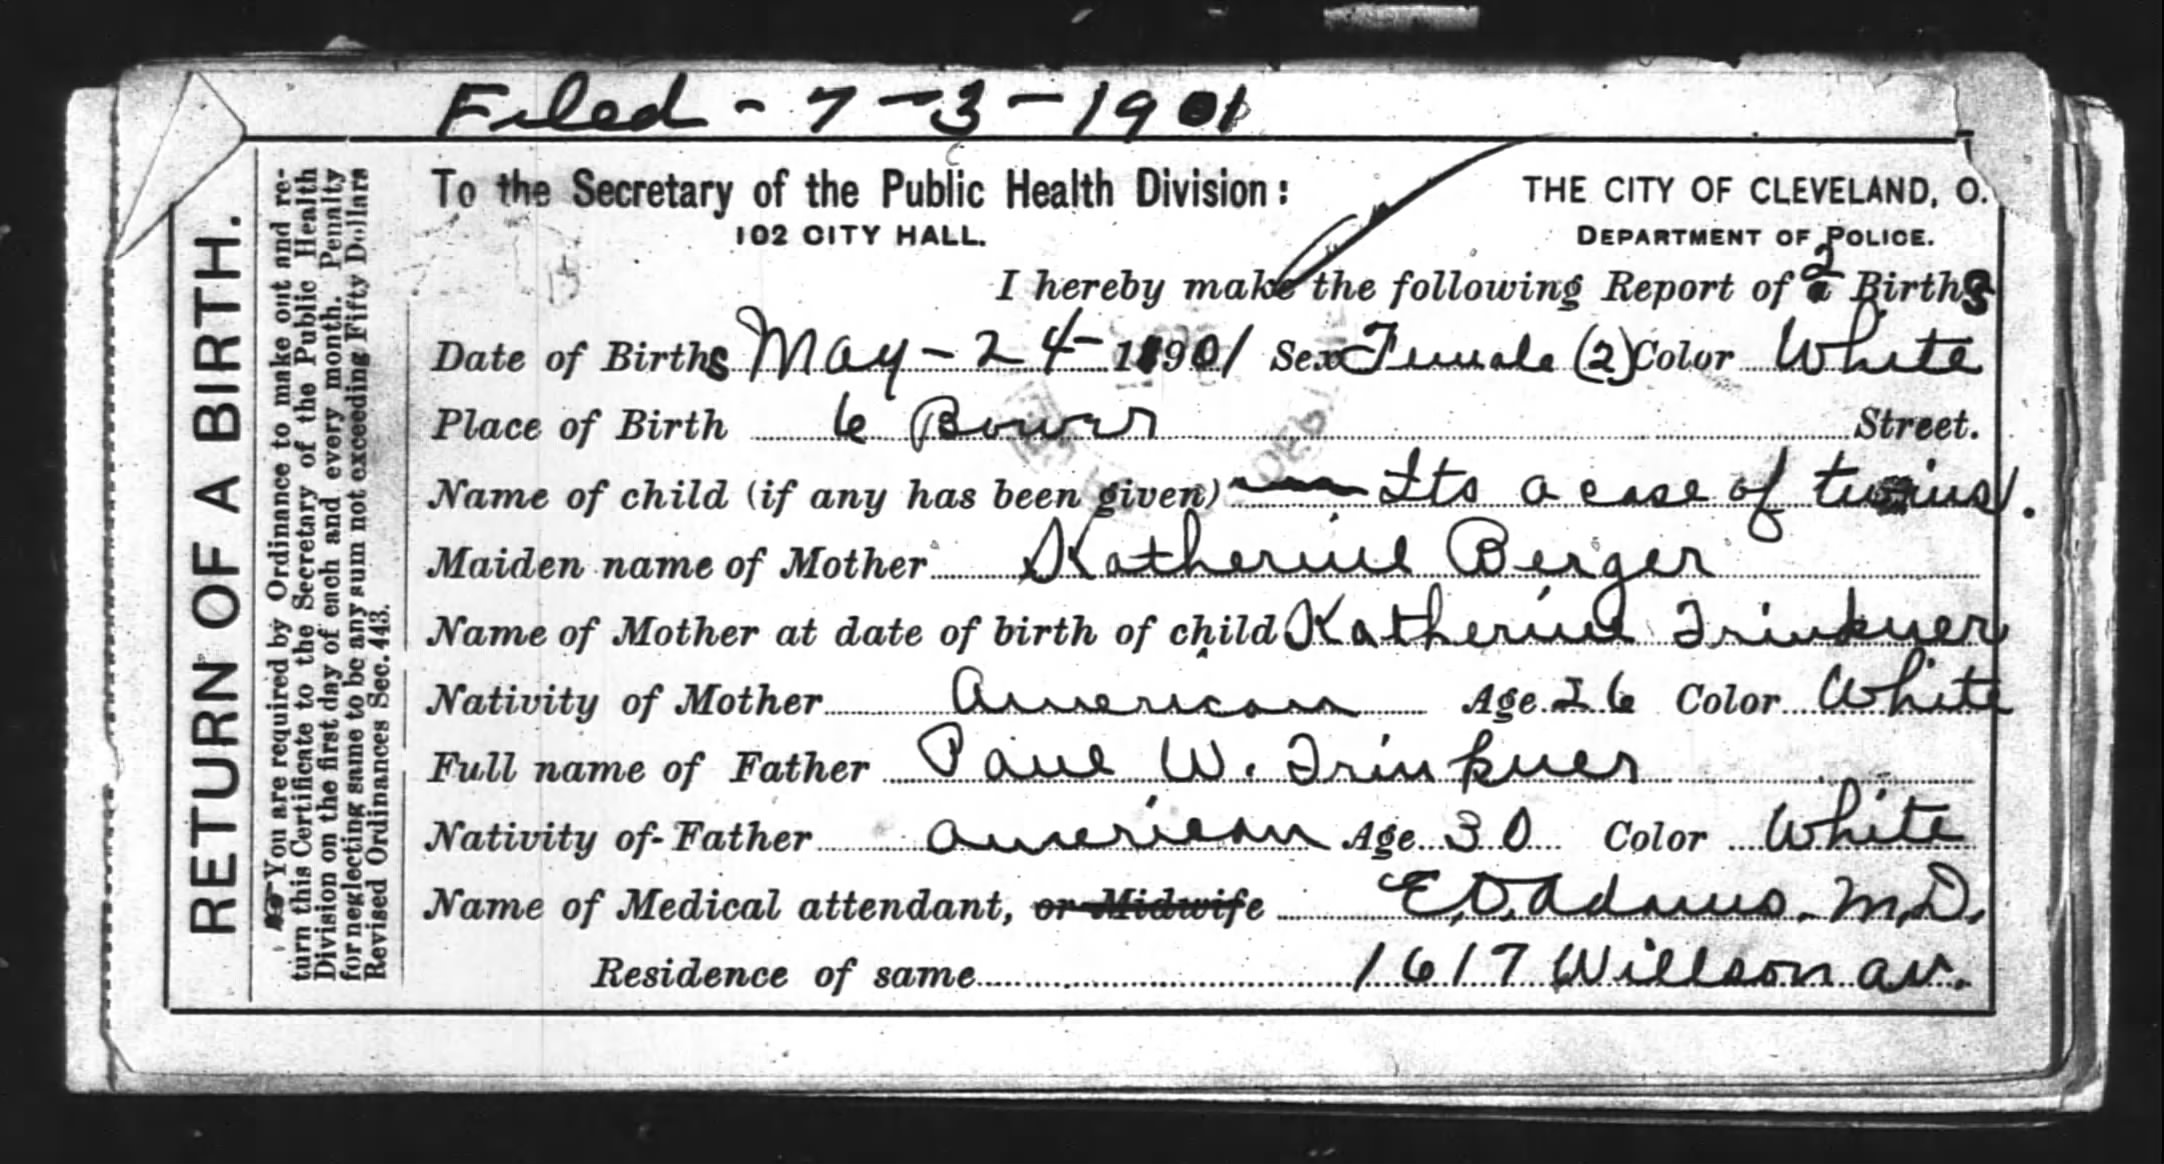 Filed - 7 - 3 - 1901
RETURN OF A BIRTH.
You are required by Ordinance to make out and re-
turn this Certificate to the Secretary of the Public Health
Division on the first day of each and every month. Penalty
for neglecting same to be any sum not exceeding Fifty Dollars
Revised Ordinances Sec. 443.
To the Secretary of the Public Health Division:
102 CITY HALL.
THE CITY OF CLEVELAND, O.
DEPARTMENT OF POLICE.
I hereby make the following Report of 2 Births
Date of Births May - 24 - 1901 Sex Female (2) Color White
Place of Birth 6 Bower Street.
Name of child (if any has been given) Its a case of twins.
Maiden name of Mother Katherine Berger
Name of Mother at date of birth of child Katherine Trinkner
Nativity of Mother American Age 26 Color White
Full name of Father Paul W. Trinkner
Nativity of Father American Age 30 Color White
Name of Medical attendant, or Midwife E.D. Adams. M.D.
Residence of same 1617 Willson av.